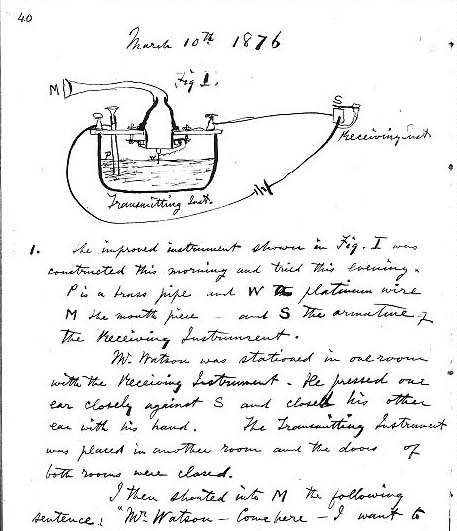 40
March 10th 1876
Fig 1.
M
S
Receiving Inst.
P
W
Transmitting Inst.
1. The improved instrument shown in Fig. I was
constructed this morning and tried this evening.
P is a brass pipe and W the platinum wire
M the mouth piece – and S the armature of
the Receiving Instrument.
Mr. Watson was stationed in one room
with the Receiving Instrument. He pressed one
ear closely against S and closed his other
ear with his hand. The Transmitting Instrument
was placed in another room and the doors of
both rooms were closed.
I then shouted into M the following
sentence: "Mr. Watson – Come here – I want to